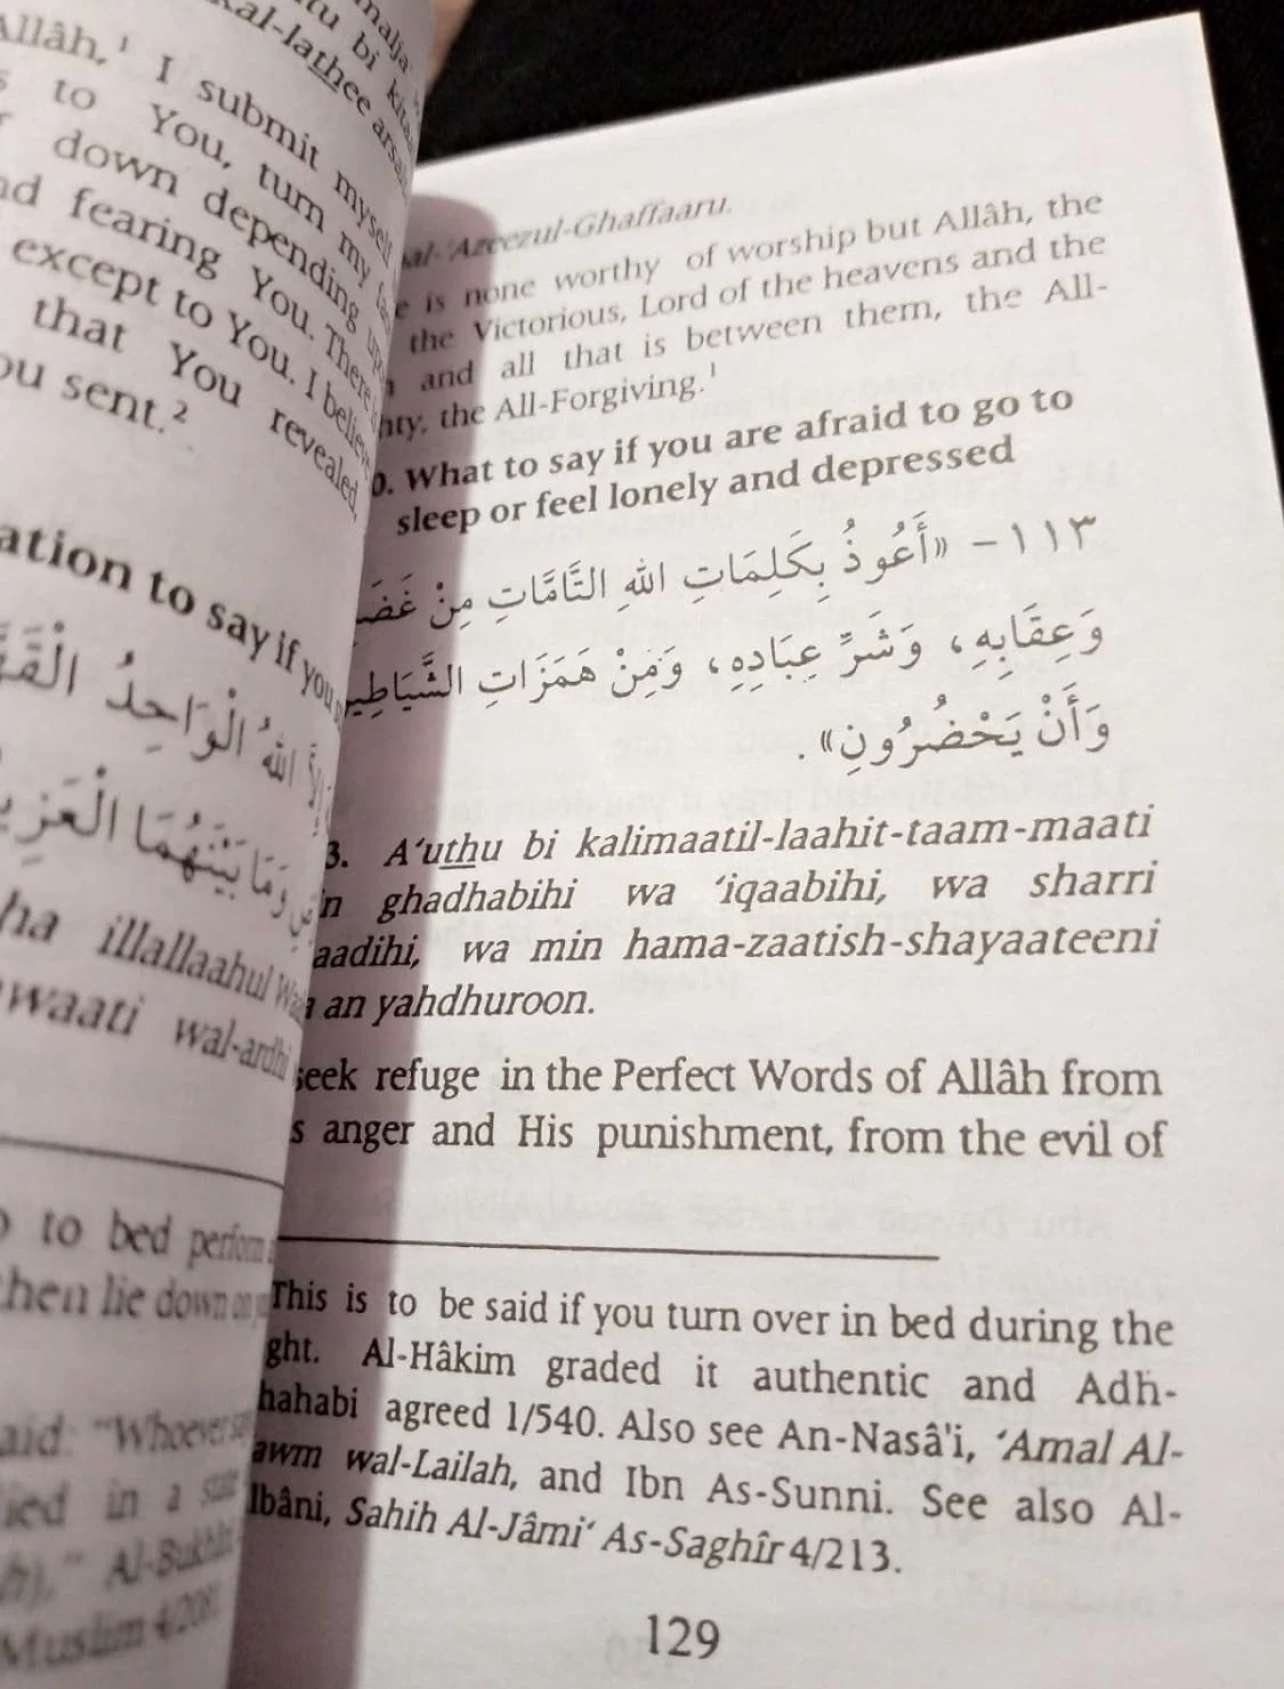 Allâh,¹ I submit myself
to You, turn my
down depending upon
fearing You. There is
except to You. I believe
that You revealed,
sent.²
to say if you
اللهُ الْوَاحِدُ
وَمَا بَيْنَهُمَا
illallaahul
wal-ardhi
to bed perform
lie down on
"Whoever
in a
Al-Bukhâri
Muslim
al-'Azeezul-Ghaffaaru.
is none worthy of worship but Allâh, the
the Victorious, Lord of the heavens and the
and all that is between them, the All-
the All-Forgiving.¹
What to say if you are afraid to go to
sleep or feel lonely and depressed
١١٣ – «أَعُوذُ بِكَلِمَاتِ اللهِ التَّامَّاتِ مِنْ
وَعِقَابِهِ، وَشَرِّ عِبَادِهِ، وَمِنْ هَمَزَاتِ
وَأَنْ يَحْضُرُونِ».
A‘uthu bi kalimaatil-laahit-taam-maati
ghadhabihi wa ‘iqaabihi, wa sharri
wa min hama-zaatish-shayaateeni
an yahdhuroon.
seek refuge in the Perfect Words of Allâh from
anger and His punishment, from the evil of
This is to be said if you turn over in bed during the
Al-Hâkim graded it authentic and Adh-
agreed 1/540. Also see An-Nasâ'i, ‘Amal Al-
wal-Lailah, and Ibn As-Sunni. See also Al-
Sahih Al-Jâmi‘ As-Saghîr 4/213.
129